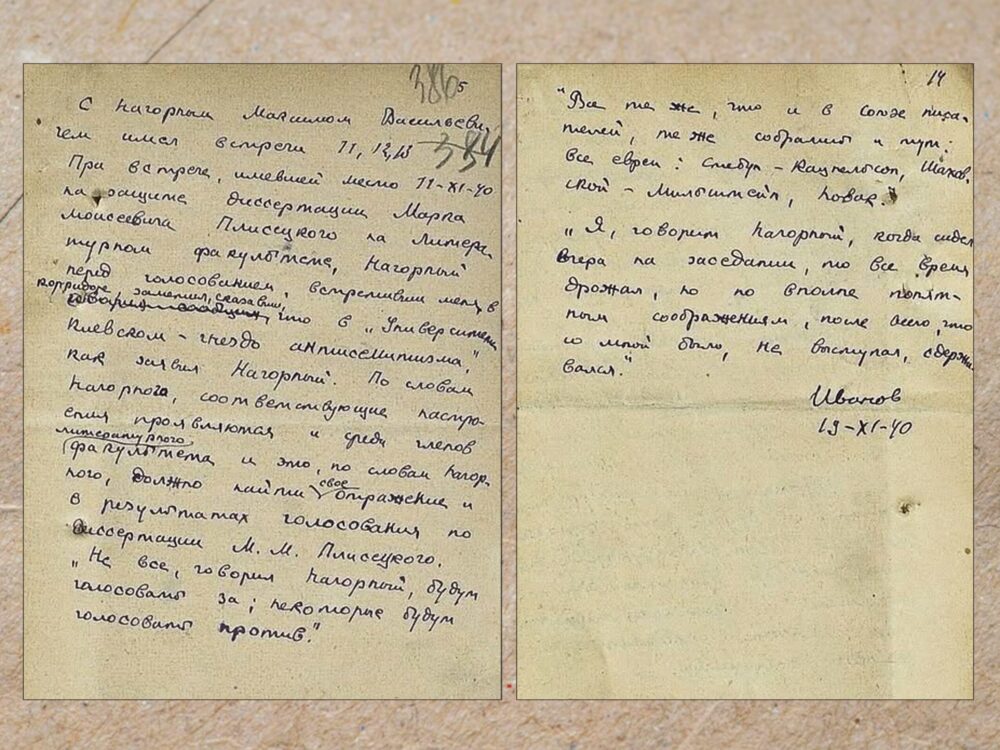 386 5
С Нагорным Максимом Васильеви-
чем имел встречи 11, 12, 13
384
При встрече, имевшей место 11-XI-40
на защите диссертации Марка
Моисеевича Плисецкого на Литера-
турном факультете, Нагорный
перед голосованием, встретивши меня в
корридоре, заметил, сказавши,
что в „Университете
Киевском - гнездо антисемитизма",
как заявил Нагорный. По словам
Нагорного, соответствующие настро-
ения проявляются и среди членов
литературного
факультета и это, по словам Нагор-
свое
ного, должно найти отражение и
в результатах голосования по
диссертации М. М. Плисецкого.
„Не все, говорил Нагорный, будут
голосовать за; некоторые будут
голосовать против."
14
"Все те же, что и в союзе писа-
телей, те же собрались и тут:
все евреи: Стебун - Кацнельсон, Шахов-
ской - Мильштейн, Новак."
„Я, говорит Нагорный, когда сидел
вчера на заседании, то все время
дрожал, но по вполне понят-
ным соображениям, после всего, что
со мной было, не выступал, сдержи-
вался."
Иванов
19-XI-40